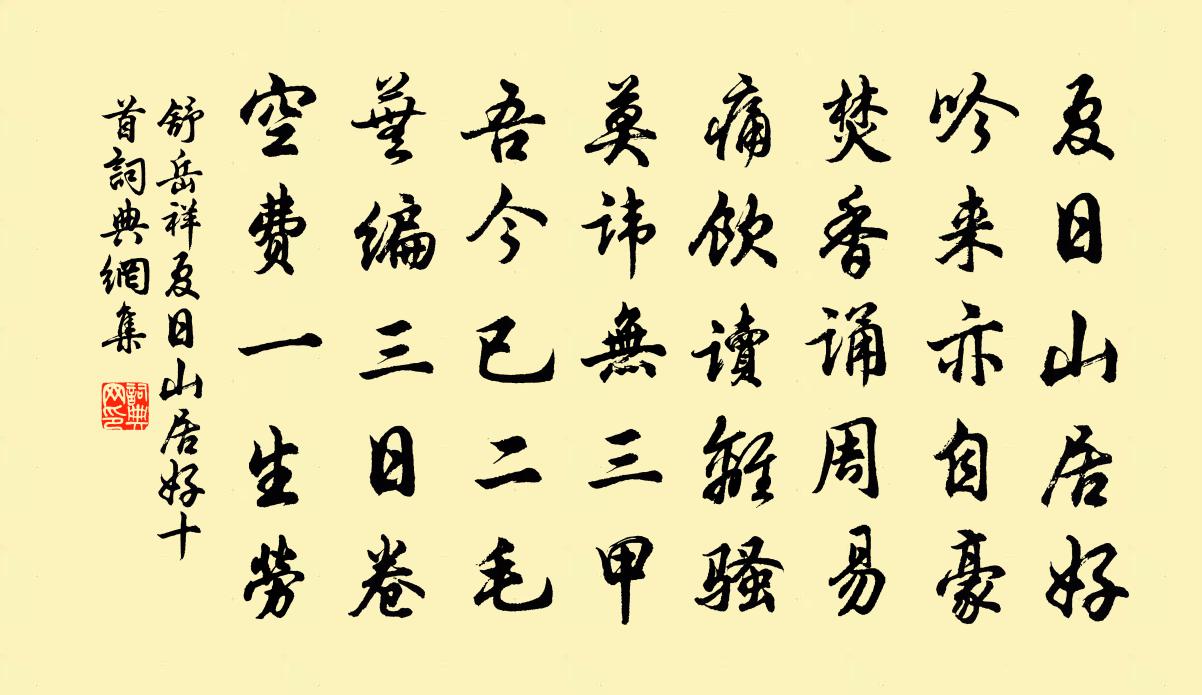 夏日山居好
吟来亦自豪
焚香誦周易
痛飲讀離騷
莫諱無三甲
吾今已二毛
蕪編三日卷
空費一生勞
舒岳祥夏日山居好十
首詞典網集
詞典
网印